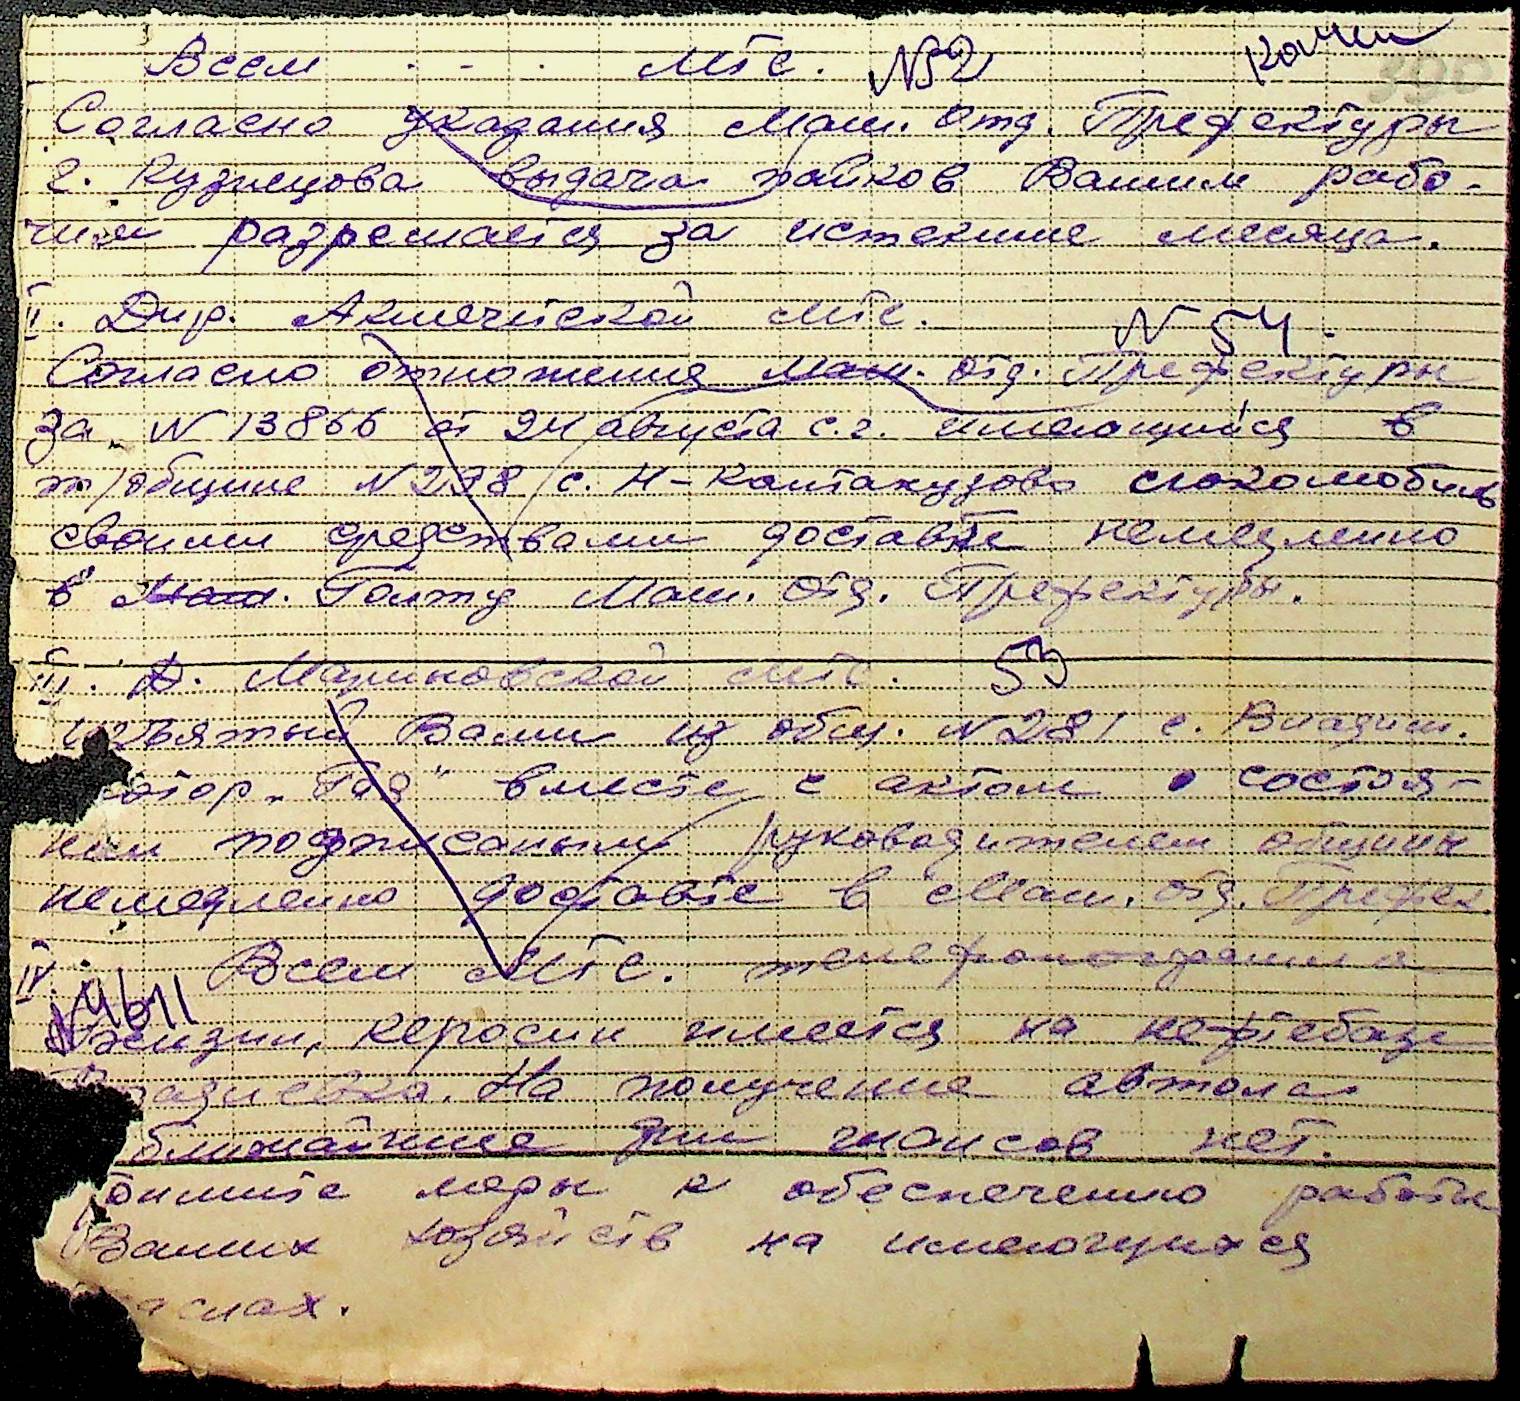 Всем . - . МТС. N 52 копии 390
Согласно указания Маш. Отд. Префектуры
г. Кузнецова выдача пайков Вашим рабо-
чим разрешается за истекшие месяца.
II. Дир. Акмечетской МТС. N 54.
Согласно отношения Маш. Отд. Префектуры
за N 13866 от 24 августа с.г. имеющийся в
т/общине N 298 с. Н-Кантакузово локомобиль
своими средствами доставте немедленно
в Маш. Голту Маш. Отд. Префектуры.
III. Д. Мариновской МТС. 53
изъятый Вами из общ. N 281 с. Владим.
отор „Гая" вместе с актом о состоя-
нии подписаным руководителем общины
немедленно доставте в Маш. Отд. Префек.
IV. Всем МТС. телефонограмма
N 4611
Бензин, керосин имеется на нефтебазе
адиевка. На получение автола
ближайшие дни шансов нет.
римите меры к обеспечению работы
Ваших хозяйств на имеющихся
аслах.